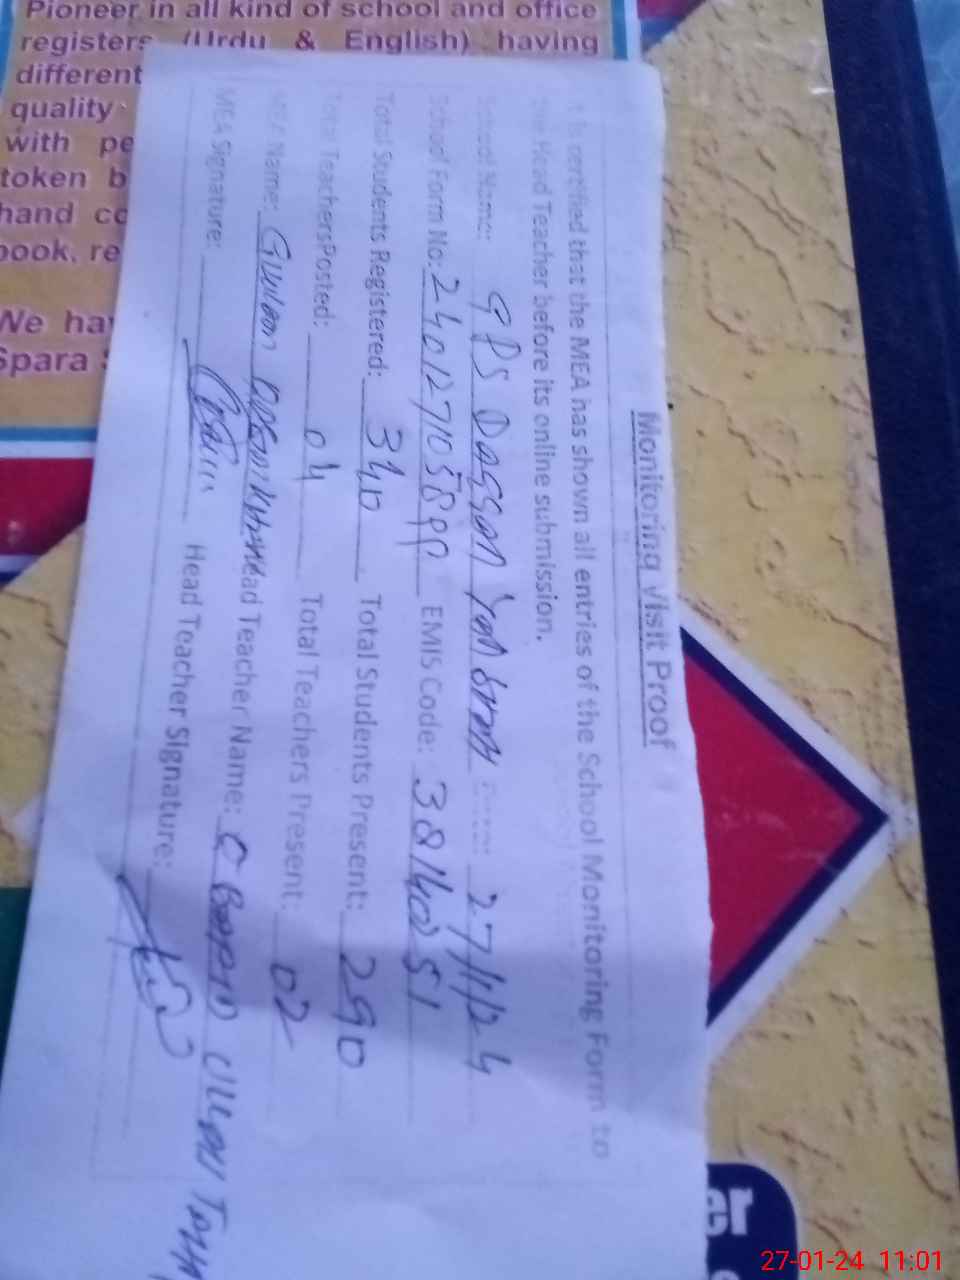 Pioneer in all kind of school and office
registers (Urdu & English) having
different
quality
with pe
token b
hand co
book, re
We ha
Spara
Monitoring Visit Proof
It is certified that the MEA has shown all entries of the School Monitoring Form to
Head Teacher before its online submission.
School Name: GPS Daggan 27/1/24
School Form No: EMIS Code: 38140251
Total Students Registered: 340 Total Students Present: 290
Total Teachers Posted: 04 Total Teachers Present: 02
MEA Name: Head Teacher Name:
MEA Signature: Head Teacher Signature:
27-01-24 11:01